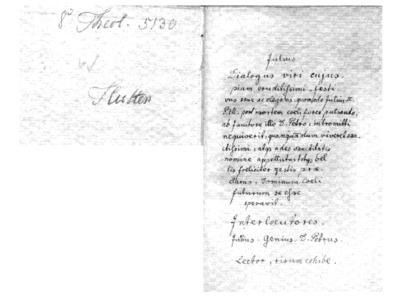 8° Theol. 5130
Hutten
Julius
Dialogus viri cujus
piam eruditissimi festi
vus sane ac elegans, quomodo Julius II.
P. M. post mortem coeli fores pulsando,
ab janitore illo D. Petro, intromitti
nequiverit, quanquam dum viveret sanc
tissimi, atque adeo sanctitatis
nomine appellatus, totque bel
lis feliciter gestis prae
clarus, Dominum coeli
futurum se esse
speravit.
Interlocutores.
Julius. Genius. D. Petrus.
Lector, risum cohibe.